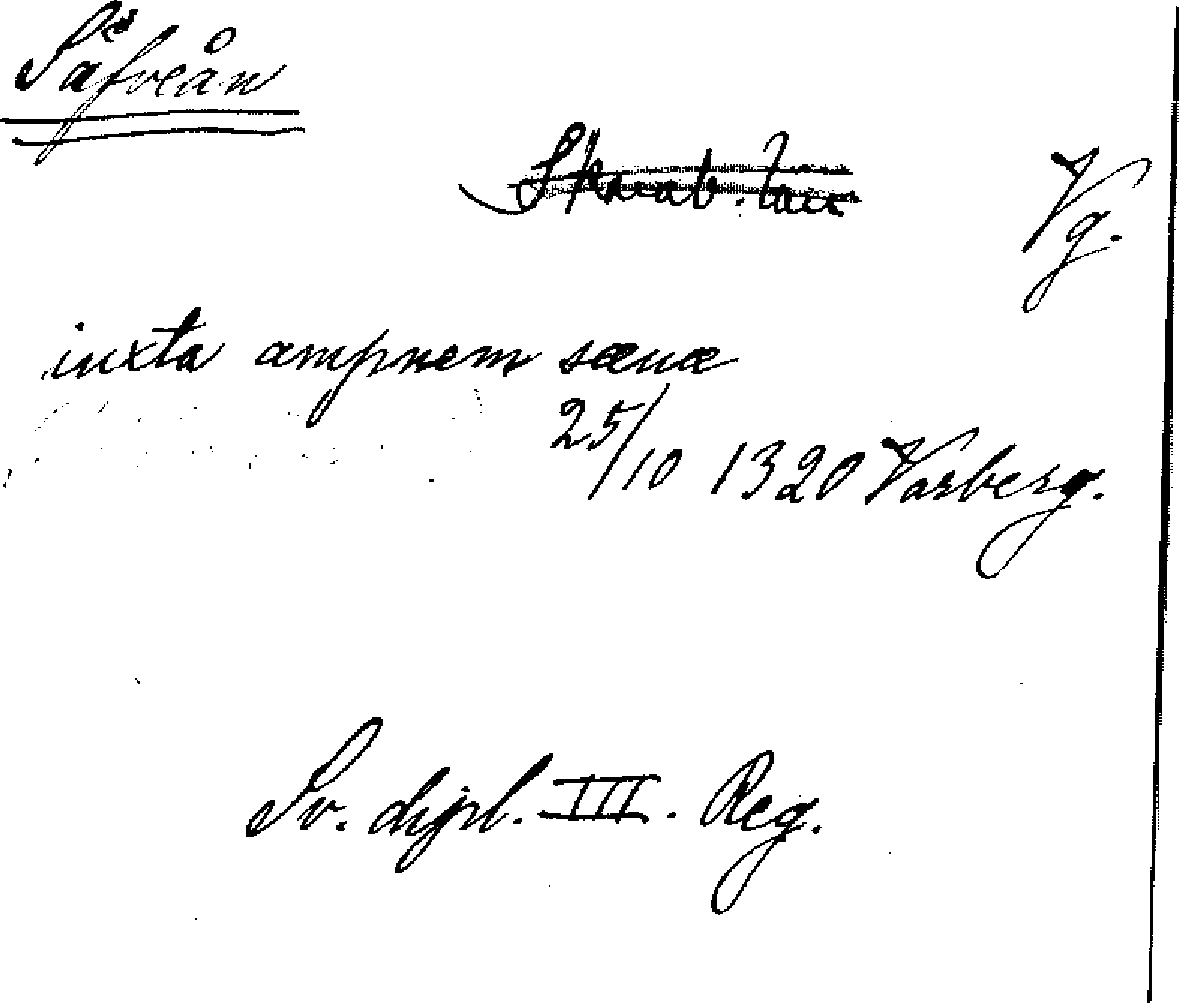 Säfveån
Skarab. län Vg.
iuxta ampnem sæuæ
25/10 1320 Varberg.
Sv. dipl. III. Reg.